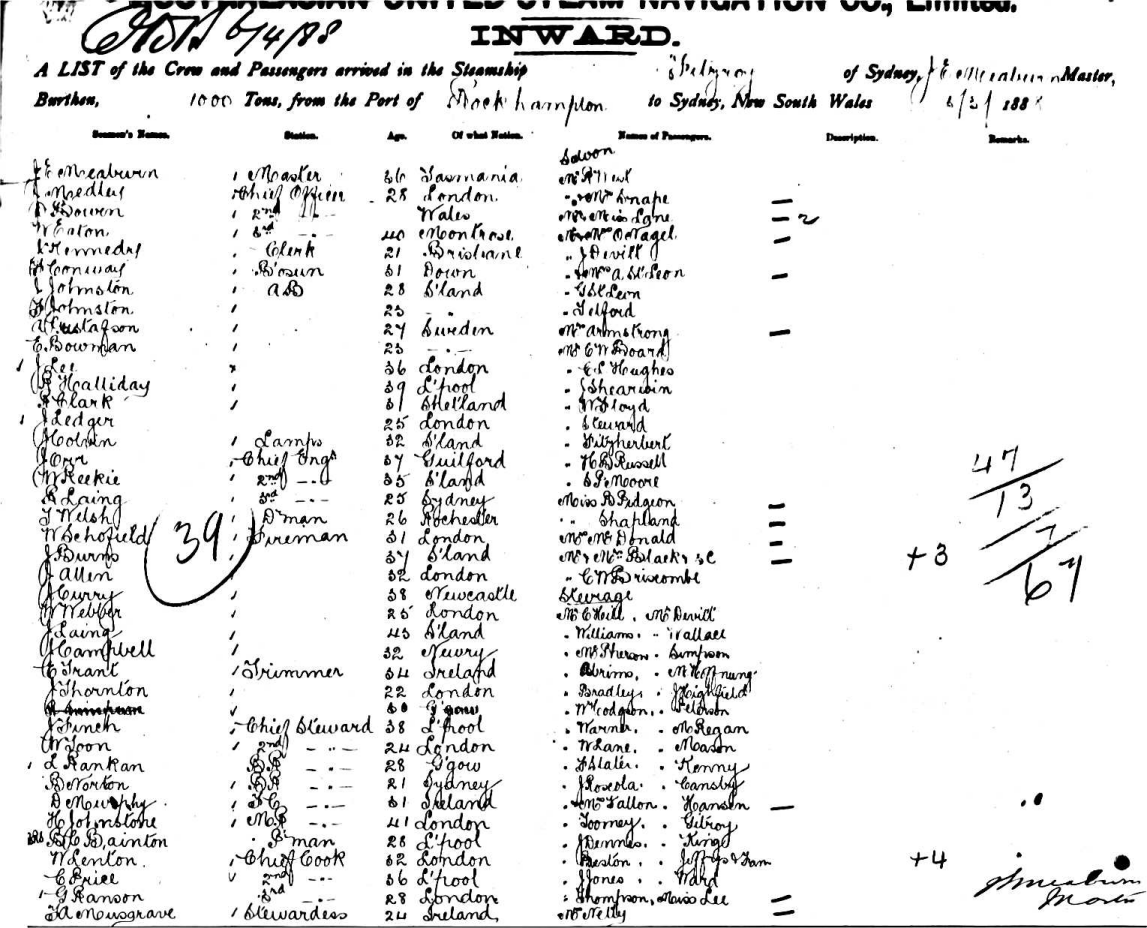 AUSTRALASIAN UNITED STEAM NAVIGATION CO., Limited.
6/4/88
INWARD.
A LIST of the Crew and Passengers arrived in the Steamship Fitzroy of Sydney, J E Meaburn Master,
Burthen, 1000 Tons, from the Port of Rockhampton to Sydney, New South Wales 188
Seamen's Names. Station. Age. Of what Nation. Names of Passengers. Description. Remarks.
Saloon
J E Meaburn Master 36 Tasmania Mr R West
J Medley Chief Officer 28 London " Mrs Snape —
Bowen 2nd Wales Mr & Miss Lane — 2
W Eaton 3rd 40 Montrose Mr & Mrs O Nagel —
J Kennedy Clerk 21 Brisbane " J Devitt
Conway B'osun 31 Down " & Mrs A St Leon —
J Johnston AB 28 S'land " G St Leon
J Johnston 23 " Telford
Gustafson 27 Sweden Mrs Armstrong —
E Bowman 23 Mr C W Board
J Lee 36 London " E S Hughes
R Halliday 39 L'pool " J Shearwin
Clark 31 Shetland " W Floyd
J Ledger 25 London " Steward
J Colvin Lamps 32 S'land " Fitzherbert
J Orr Chief Engr 37 Guilford " H B Russell
W Reekie 2nd 35 S'land " S P Moore
R Laing 3rd 25 Sydney Miss B Pidgeon —
T Welsh D'man 26 Rochester " Shapland —
W Schofield Fireman 31 London Mrs McDonald —
J Burns 37 S'land Mr & Mrs Black & 3 C — +3
J Allen 32 London " C W Briscombe
J Curry 38 Newcastle Steerage
W Webber 25 London Mr C Heill, Mr Devitt
J Laing 43 S'land " Williams. " Wallace
J Campbell 32 Newry " McPherson " Simpson
C Grant Trimmer 34 Ireland " Abrims, " M Hoffnung
J Thornton 22 London " Bradley, " J Highfield
30 G'gow " W Hodgson, " Peterson
J Finch Chief Steward 38 L'pool " Warner, " McRegan
W Toon 2nd 24 London " W Lane, " Mason
L Rankan B R 28 G'gow " Slater, " Kenny
B Norton B R 21 Sydney " J Roseola. " Cansby
D Murphy F C 31 Ireland " & Mrs Fallon. " Hansen —
H Johnstone M R 41 London " Toomey, " Gilroy
B C Bainton P'man 28 L'pool " J Dennes. " King
W Lenton Chief Cook 32 London " Beston. " Jeffers & Fam +4
C Price 2nd 36 L'pool " J Jones. " Ward
G Ranson 3rd 28 London " Thompson, Miss Lee —
T A Musgrave Stewardess 24 Ireland Mrs Nelly —
39
47
13
7
67
J E Meaburn
Master